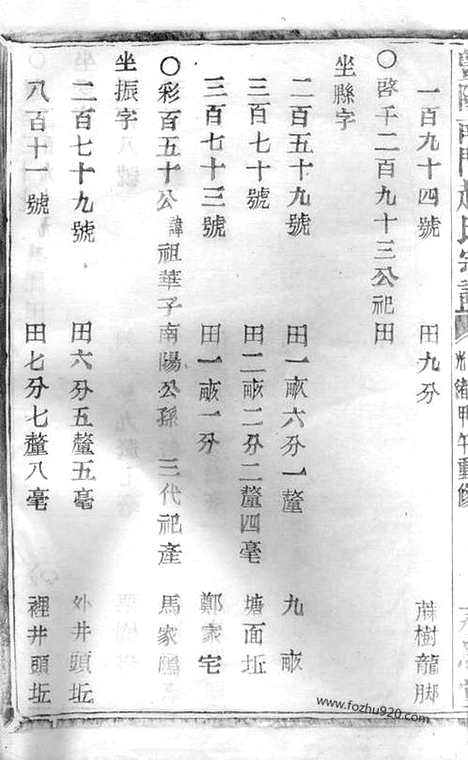 暨陽南門趙氏宗譜 光緒甲午重修
一百九十四號 田九分 蔴樹龍脚
〇啓千二百九十三公祀田
坐縣字
二百五十九號 田一畝六分一釐 九畝
三百七十號 田二畝二分二釐四毫 塘面坵
三百七十三號 田一畝一分 鄭家宅
〇彩百五十公諱祖華子南陽公孫 三代祀產 馬家
坐振字
二百七十九號 田六分五釐五毫 外井頭坵
八百十一號 田七分七釐八毫 裡井頭坵
www.fozhu920.com